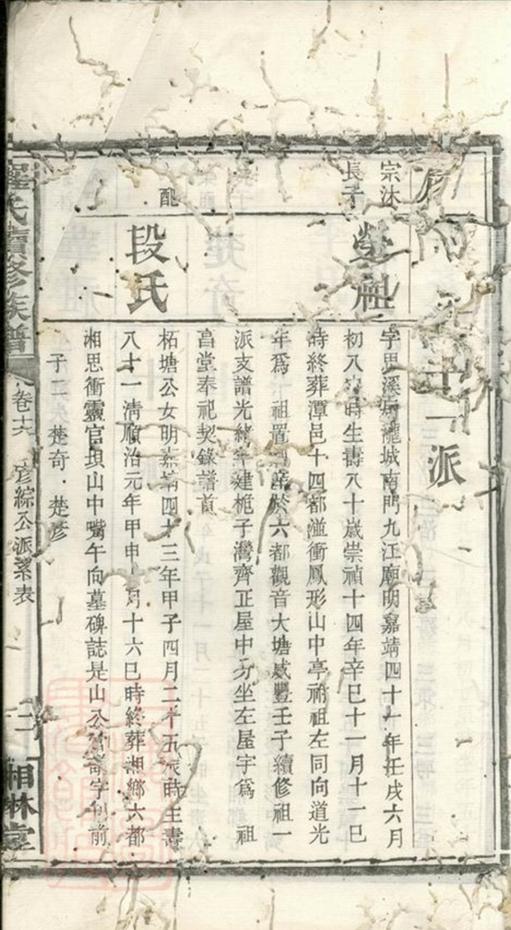 十一派
宗沐
長子
榮祖
字思溪 城南門九江廟明嘉靖四十一年壬戌六月
初八 時生壽八十歲崇禎十四年辛巳十一月十一巳
時終葬潭邑十四都溢衝鳳形山中亭祔祖左同向道光
年為 祖置 於六都觀音大塘咸豐壬子續修祖一
派支譜光緒 年建桅子灣齊正屋中 坐左屋宇為祖
享堂奉祀契錄譜首
配
段氏
柘塘公女明嘉靖四十三年甲子四月二十五辰時生壽
八十一清順治元年甲申 月十六巳時終葬湘鄉六都
相思衝靈官垻山中嘴午向墓碑誌是山公 奇字 前
子二 楚奇 楚彥
羅氏續修族譜
卷十六
彥綜公派系表
二